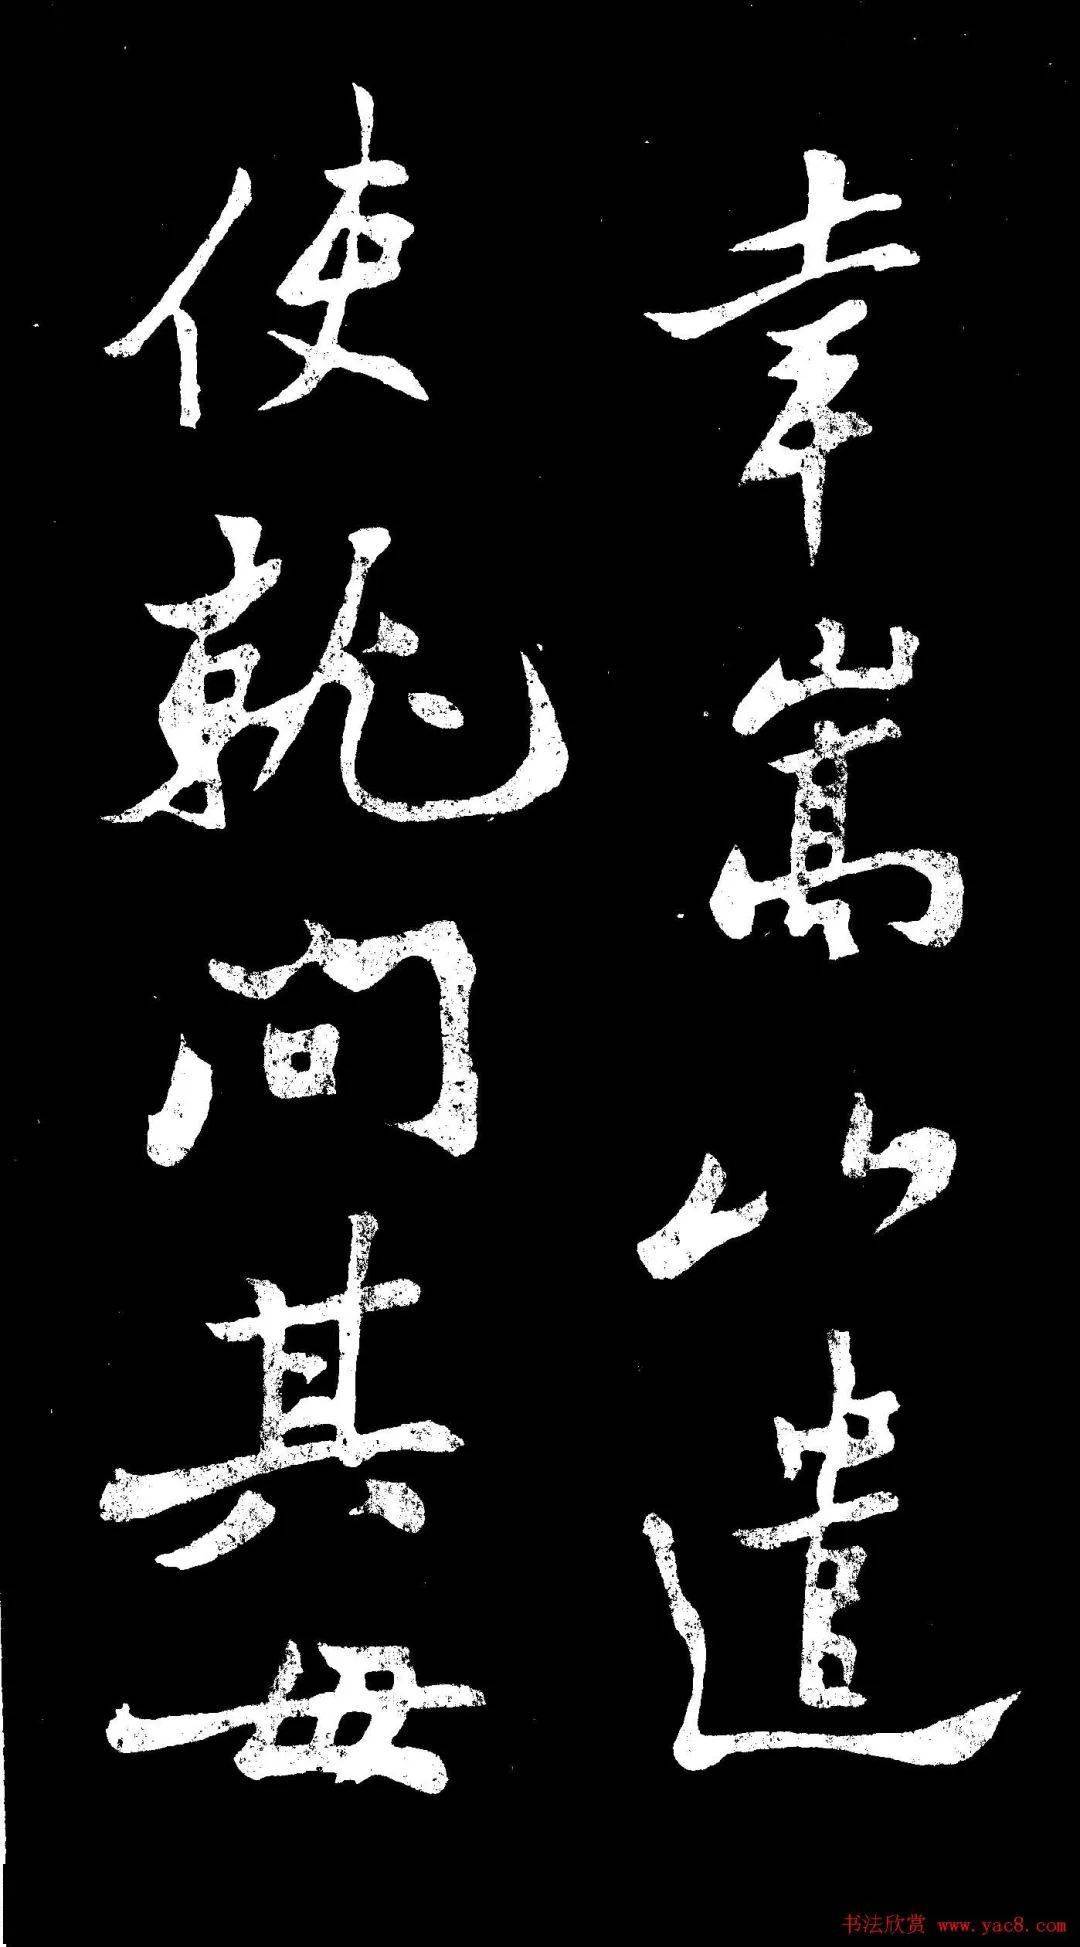 幸嵩山遣
使就問其母
书法欣赏 www.yac8.com